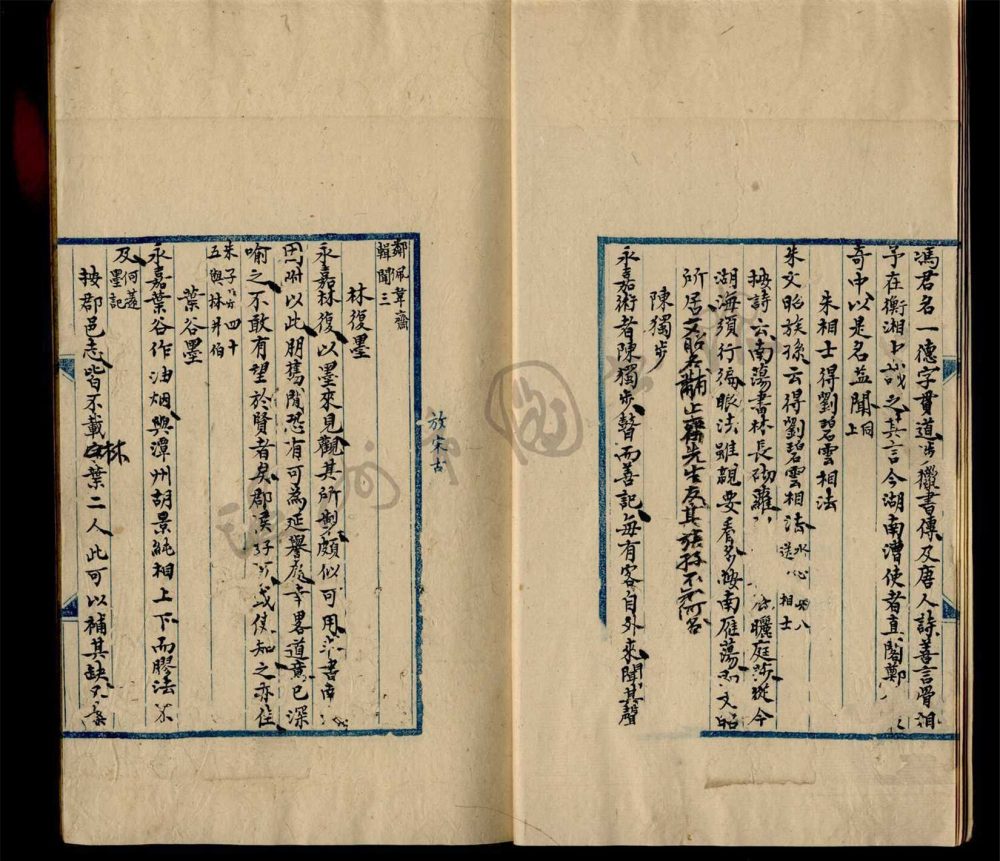 馮君名一德字貫道步獵書傳及唐人詩善言骨相
予在衡湘上試之其言今湖南漕使者直閣鄭
奇中以是名益聞同上
朱相士得劉碧雲相法
朱文昭族孫云得劉碧雲相法水心 八送 相士
按詩云南蕩書林長 蘿 曬庭莎從今
湖海須行徧眼法雖親要看多按南雁蕩 文昭
所居文昭名黼止齋先生友其族孫不可名
陳獨步
永嘉術者陳獨步瞽而善記每有客自外來聞其聲
放宋古
鄭 葦齋
輯聞三
林復墨
永嘉林復以墨來見觀其所製頗似可用 書南
因附以此朋舊閒恐有可為延譽處幸畧道意已深
喻之不敢有望於賢者矣郡侯 或使知之亦佳
朱子 四十
五與林井伯
葉谷墨
永嘉葉谷作油烟與潭州胡景純相上下而膠法不
及何薳墨記
按郡邑志皆不載林葉二人此可以補其缺又案